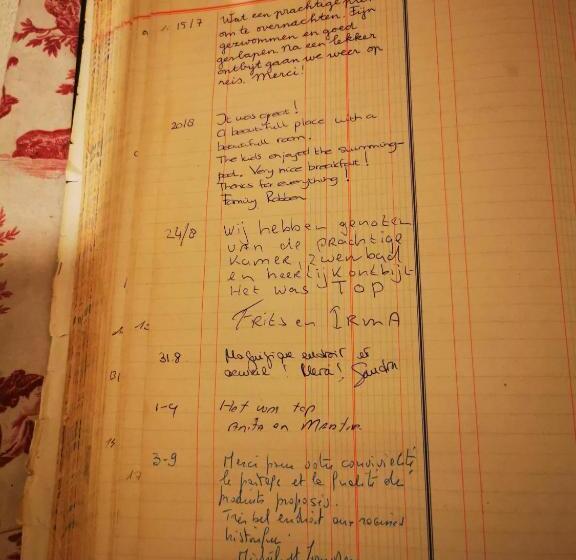 15/7 Wat een prachtige plek
om te overnachten. Fijn
gezwommen en goed
geslapen. Na een lekker
ontbijt gaan we weer op
reis. Merci!
20/8 It was great!
A beautifull place with a
beautifull room.
The kids enjoyed the swimming-
pool. Very nice breakfast!
Thanks for everything!
Family Robben
24/8 Wij hebben genoten
van de prachtige
kamer, zwembad
en heerlijk ontbijt
Het was TOP
Frits en IRMA
31.8 Magnifique endroit et
accueil! Merci! Sandra
1-9 Het was top
Anita en Martin
3-9 Merci pour votre convivialité
le partage et la qualité de
produits proposés.
Très bel endroit aux racines
historique.